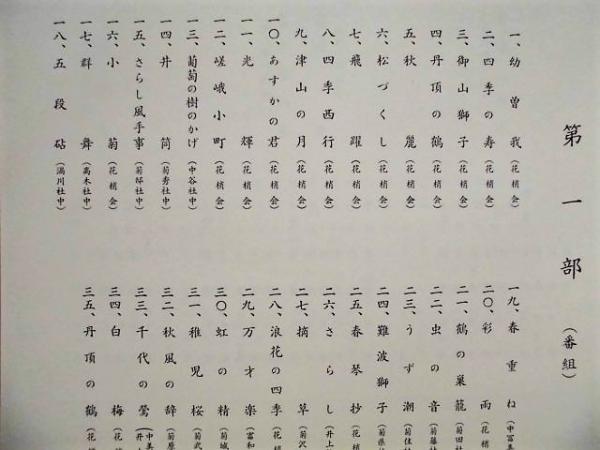 第一部(番組)
一、幼曽我(花梢会)
二、四季の寿(花梢会)
三、御山獅子(花梢会)
四、丹頂の鶴(花梢会)
五、秋麗(花梢会)
六、松づくし(花梢会)
七、飛躍(花梢会)
八、四季西行(花梢会)
九、津山の月(花梢会)
一〇、あすかの君(花梢会)
一一、光輝(花梢会)
一二、嵯峨小町(花梢会)
一三、葡萄の樹のかげ(中谷社中)
一四、井筒(菊秀社中)
一五、さらし風手事(菊邦社中)
一六、小菊(花梢会)
一七、群舞(高木社中)
一八、五段砧(満川社中)
一九、春重ね(中冨美
二〇、彩雨(花梢
二一、鶴の巣籠(菊田社
二二、虫の音(菊藤社
二三、うず潮(菊佳社
二四、難波獅子(菊県社
二五、春琴抄(花梢
二六、さらし(井上
二七、摘草(菊沢
二八、浪花の四季(花梢
二九、万才楽(富和
三〇、虹の精(菊城
三一、稚児桜(菊武
三二、秋風の辞(菊原
三三、千代の鶯(中美 井上
三四、白梅(花梢
三五、丹頂の鶴(花梢